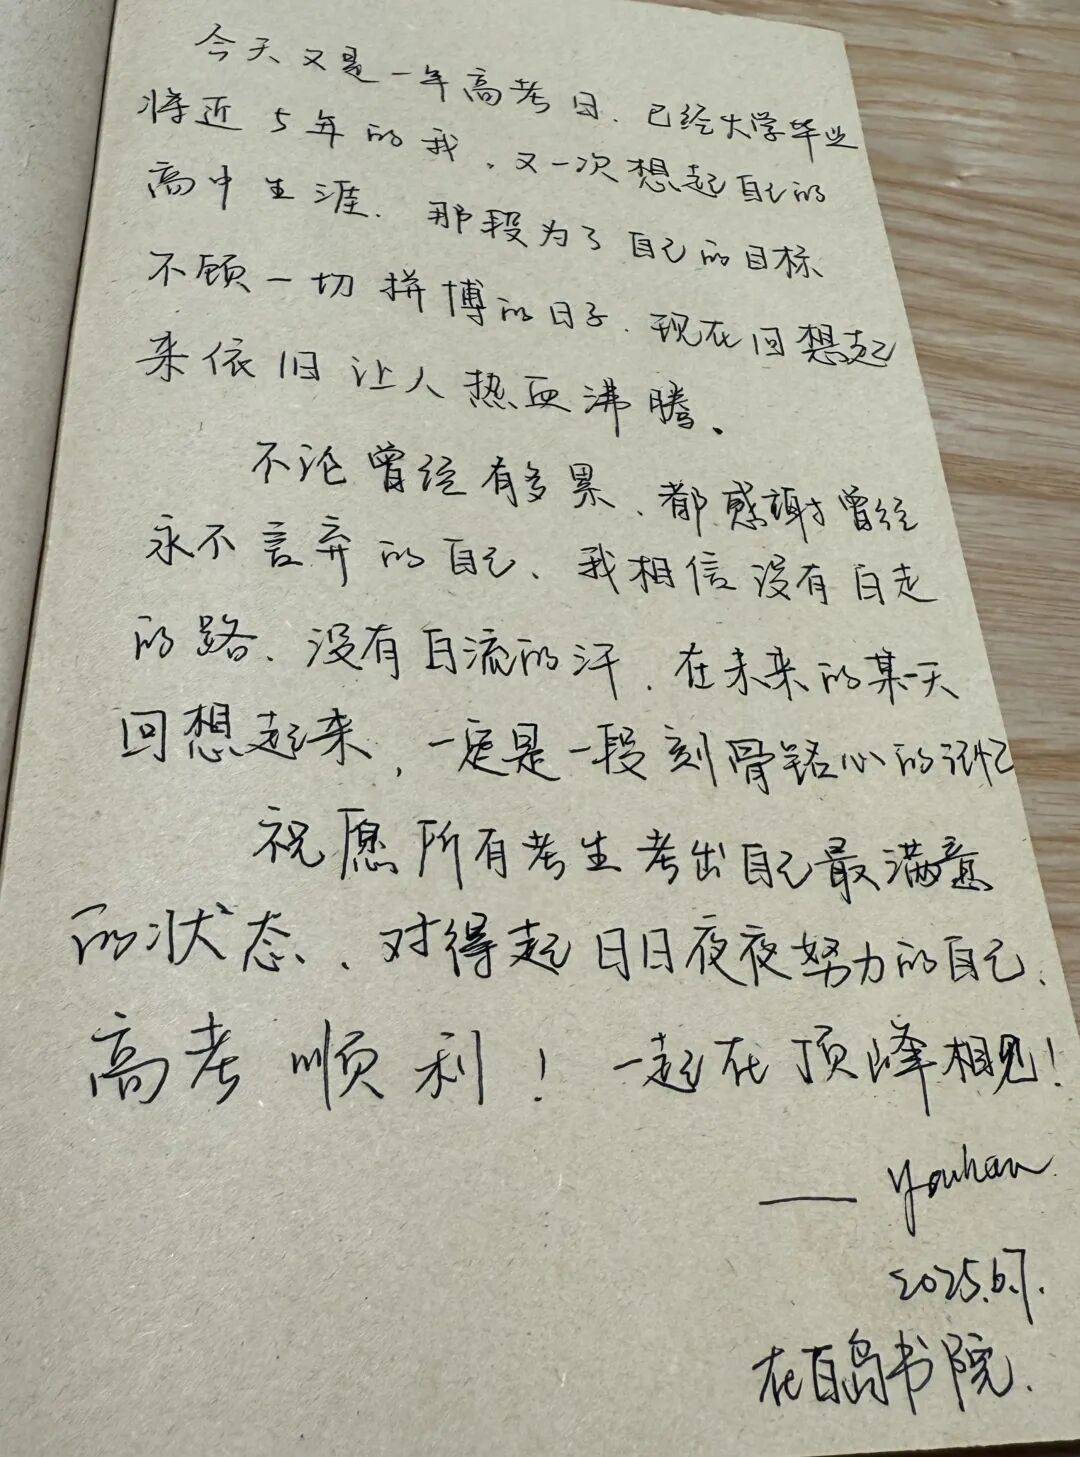 今天又是一年高考日、已经大学毕业
将近5年的我、又一次想起自己的
高中生涯、那段为了自己的目标
不顾一切拼搏的日子、现在回想起
来依旧让人热血沸腾、
不论曾经有多累、都感謝曾经
永不言弃的自己、我相信没有白走
的路、没有白流的汗、在未来的某一天
回想起来,一定是一段刻骨铭心的记忆
祝愿所有考生考出自己最满意
的状态、对得起日日夜夜努力的自己、
高考顺利!一起在顶峰相见!
—— Youhan
2025.6.7.
在百岛书院.